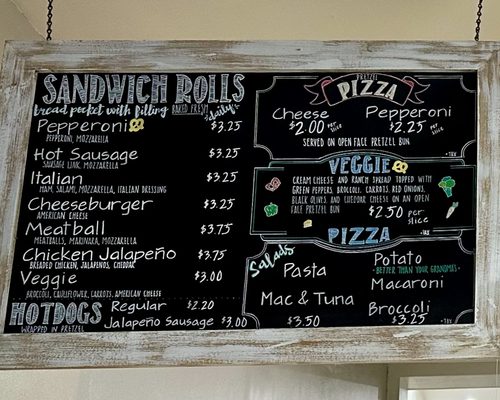 SANDWICH ROLLS
bread pocket with filling BAKED FRESH daily!
Pepperoni $3.25
PEPPERONI, MOZZARELLA
Hot Sausage $3.25
SAUSAGE LINK, MOZZARELLA
Italian $3.25
HAM, SALAMI, MOZZARELLA, ITALIAN DRESSING
Cheeseburger $3.25
AMERICAN CHEESE
Meatball $3.75
MEATBALLS, MARINARA, MOZZARELLA
Chicken Jalapeño $3.75
BREADED CHICKEN, JALAPENOS, CHEDDAR
Veggie $3.00
BROCCOLI, CAULIFLOWER, CARROTS, AMERICAN CHEESE
HOTDOGS
WRAPPED IN PRETZEL
Regular $2.20
Jalapeño Sausage $3.00
PRETZEL
PIZZA
Cheese Pepperoni
$2.00 PER SLICE $2.25 PER SLICE
SERVED ON OPEN FACE PRETZEL BUN
+TAX
VEGGIE
CREAM CHEESE AND RANCH SPREAD TOPPED WITH
GREEN PEPPERS, BROCCOLI, CARROTS, RED ONIONS,
BLACK OLIVES, AND CHEDDAR CHEESE ON AN OPEN
FACE PRETZEL BUN $2.50 per slice
+TAX
PIZZA
Salads
Pasta
Mac & Tuna
$3.50
Potato
"BETTER THAN YOUR GRANDMAS"
Macaroni
Broccoli
$3.25
+TAX